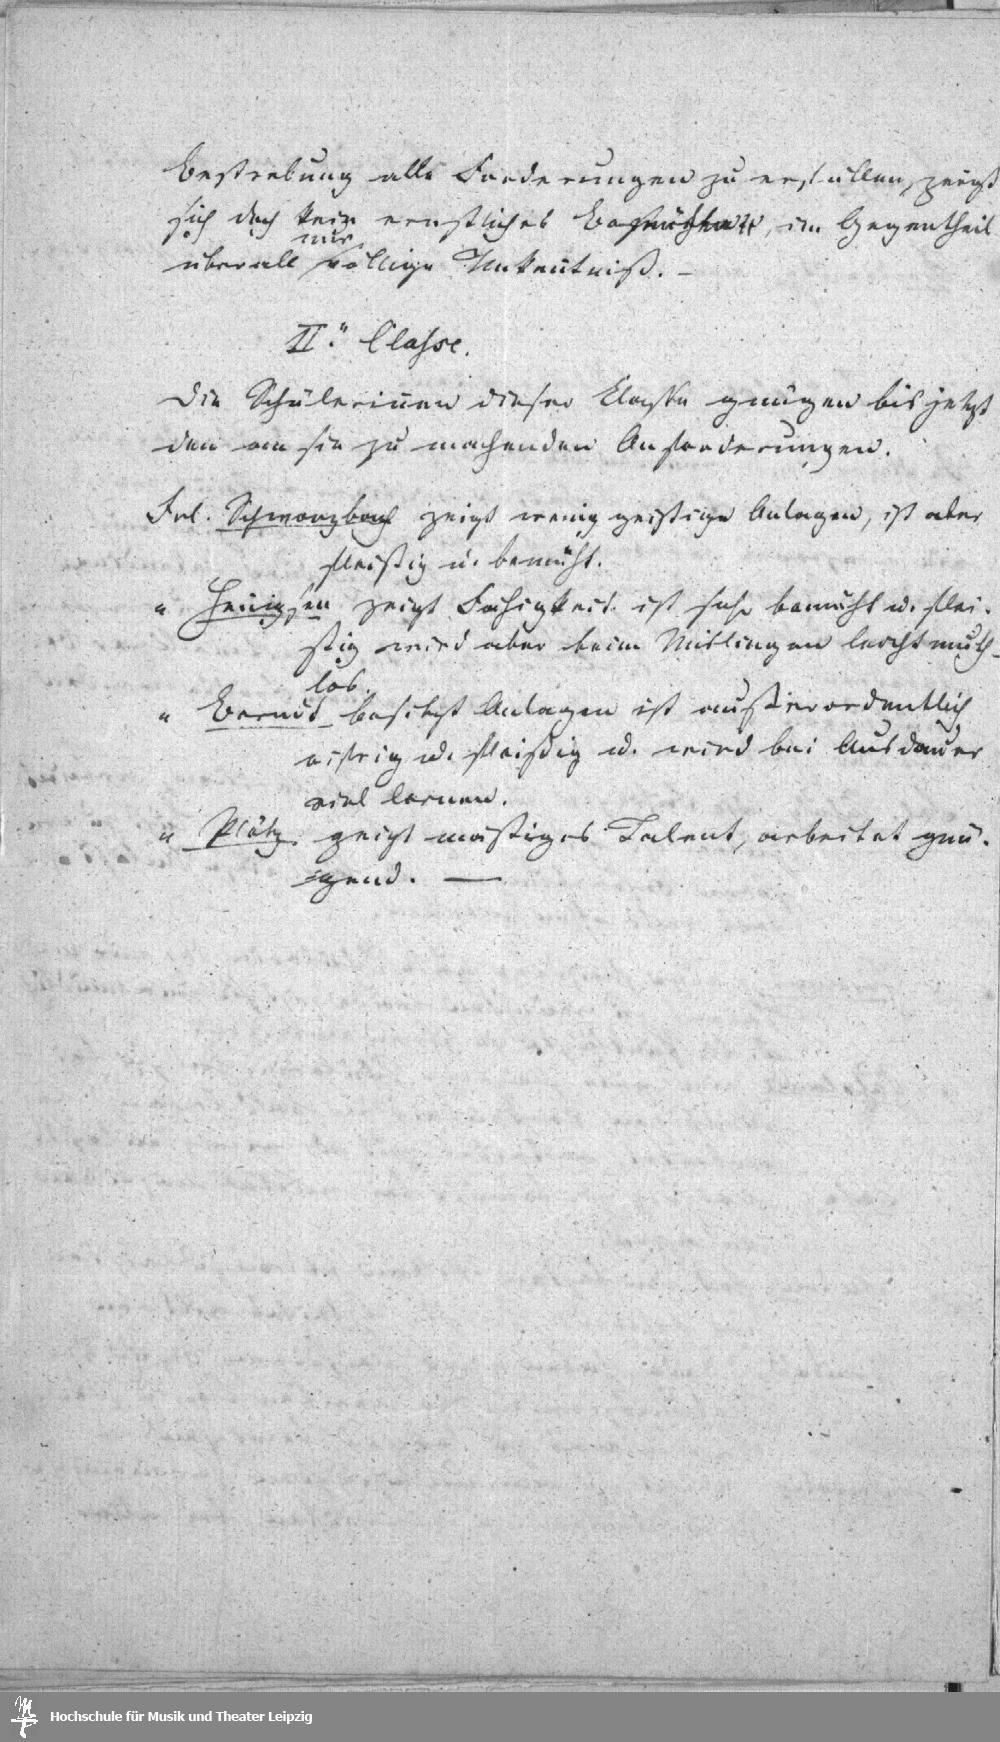 Bestrebung alle Forderungen zu erfüllen, zeigt
sich doch kein ernstliches Bemühen, im Gegentheil
nur
überall völlige Unkentniß. –
II.te Classe.
Die Schülerinnen dieser Classe gnügen bis jetzt
den an sie zu machenden Anforderungen.
Frl. Schwarzbach zeigt wenig geistige Anlagen, ist aber
fleißig u. bemüht.
" Hennigsen zeigt Fähigkeit ist sehr bemüht u. flei-
ßig wird aber beim Mislingen leicht muth-
los.
" Berndt besitzt Anlagen ist außerordentlich
eifrig u. fleißig u. wird bei Ausdauer
viel lernen.
" Plötz zeigt mäßiges Talent, arbeitet gnü-
gend. —
Hochschule für Musik und Theater Leipzig